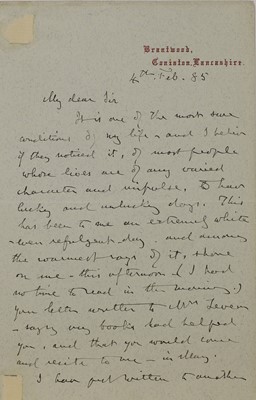 Brantwood,
Coniston, Lancashire.
4th Feb. 85
My dear Sir
It is one of the most sure
conditions of my life - and I believe
if they noticed it, of most people
whose lives are of any varied
character and impulse, to have
lucky and unlucky days. This
has been to me an extremely white
- even refulgent day. and among
the warmest rays of it, shone
on me - this afternoon (I had
no time to read in the morning)
your letter written to Mrs Severn
- saying my books had helped
you, and that you would come
and recite to me - in May.
I have just written to another